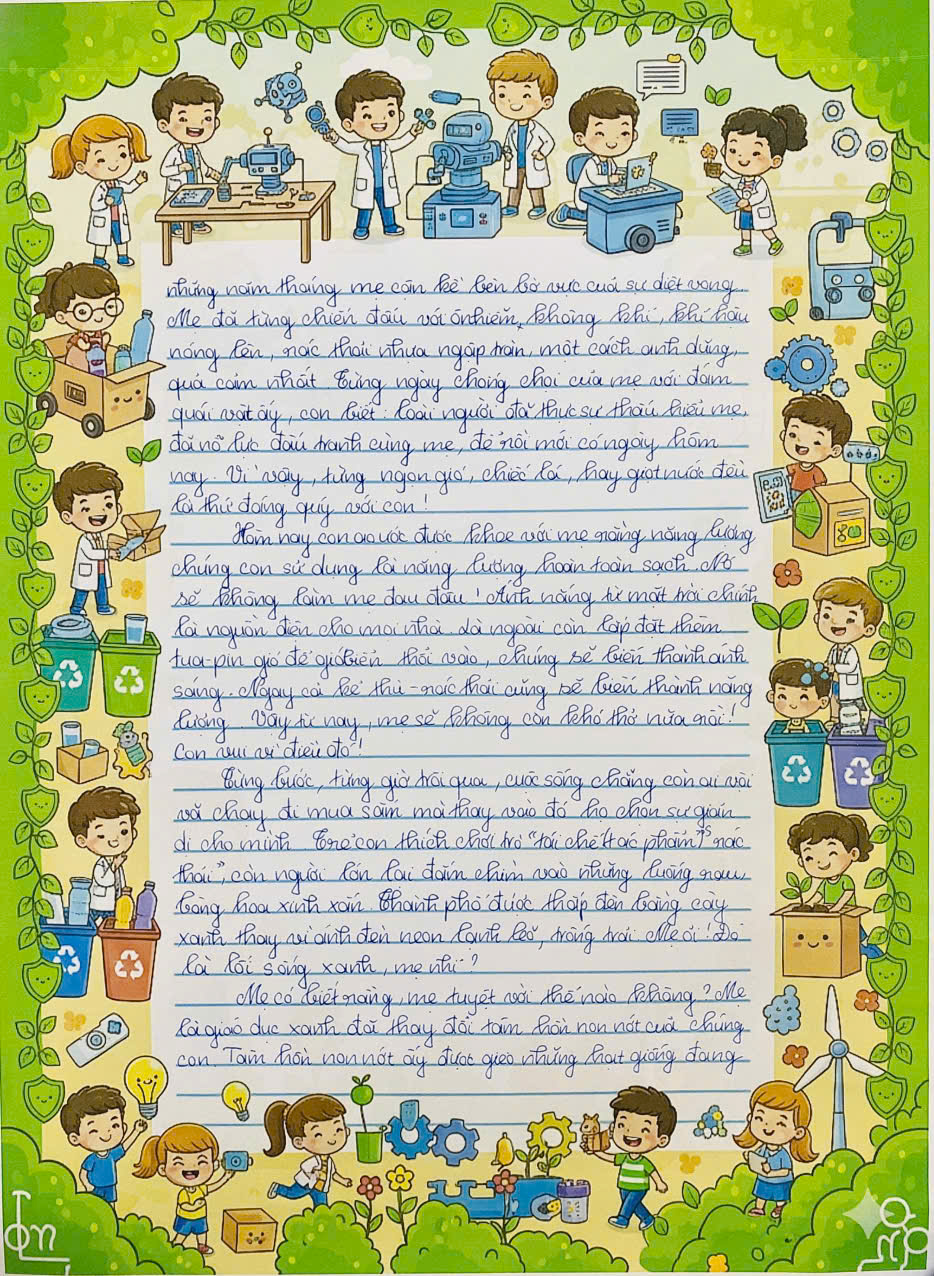 những năm tháng mẹ cận kề bên bờ vực của sự diệt vong.
Mẹ đã từng chiến đấu với ô nhiễm, không khí, khí hậu
nóng lên, rác thải nhựa ngập tràn, một cách anh dũng,
quả cảm nhất. Từng ngày chống chọi của mẹ với đám
quái vật ấy, con biết: loài người đã thực sự thấu hiểu mẹ,
đã nỗ lực đấu tranh cùng mẹ, để rồi mới có ngày hôm
nay. Vì vậy, từng ngọn gió, chiếc lá, hay giọt nước đều
là thứ đáng quý với con!
Hôm nay con ao ước được khoe với mẹ rằng năng lượng
chúng con sử dụng là năng lượng hoàn toàn sạch. Nó
sẽ không làm mẹ đau đâu! Ánh nắng từ mặt trời chính
là nguồn điện cho mọi nhà. Và ngoài còn lắp đặt thêm
tua-pin gió để gió biển thổi vào, chúng sẽ biến thành ánh
sáng. Ngay cả kẻ thù - rác thải cũng sẽ biến thành năng
lượng. Vậy từ nay, mẹ sẽ không còn khó thở nữa rồi!
Con vui vì điều đó!
Từng bước, từng giờ trôi qua, cuộc sống chẳng còn ai vội
vã chạy đi mua sắm mà thay vào đó họ chọn sự giản
dị cho mình. Trẻ con thích chơi trò "tái chế tác phẩm từ rác
thải", còn người lớn lại đắm chìm vào những luống rau,
bông hoa xinh xắn. Thành phố được thắp đèn bằng cây
xanh thay vì ánh đèn neon lạnh lẽo, trống trải. Mẹ ơi! Đó
là lối sống xanh, mẹ nhỉ?
Mẹ có biết rằng, mẹ tuyệt vời thế nào không? Mẹ
là giáo dục xanh đã thay đổi tâm hồn non nớt của chúng
con. Tâm hồn non nớt ấy được gieo những hạt giống đang